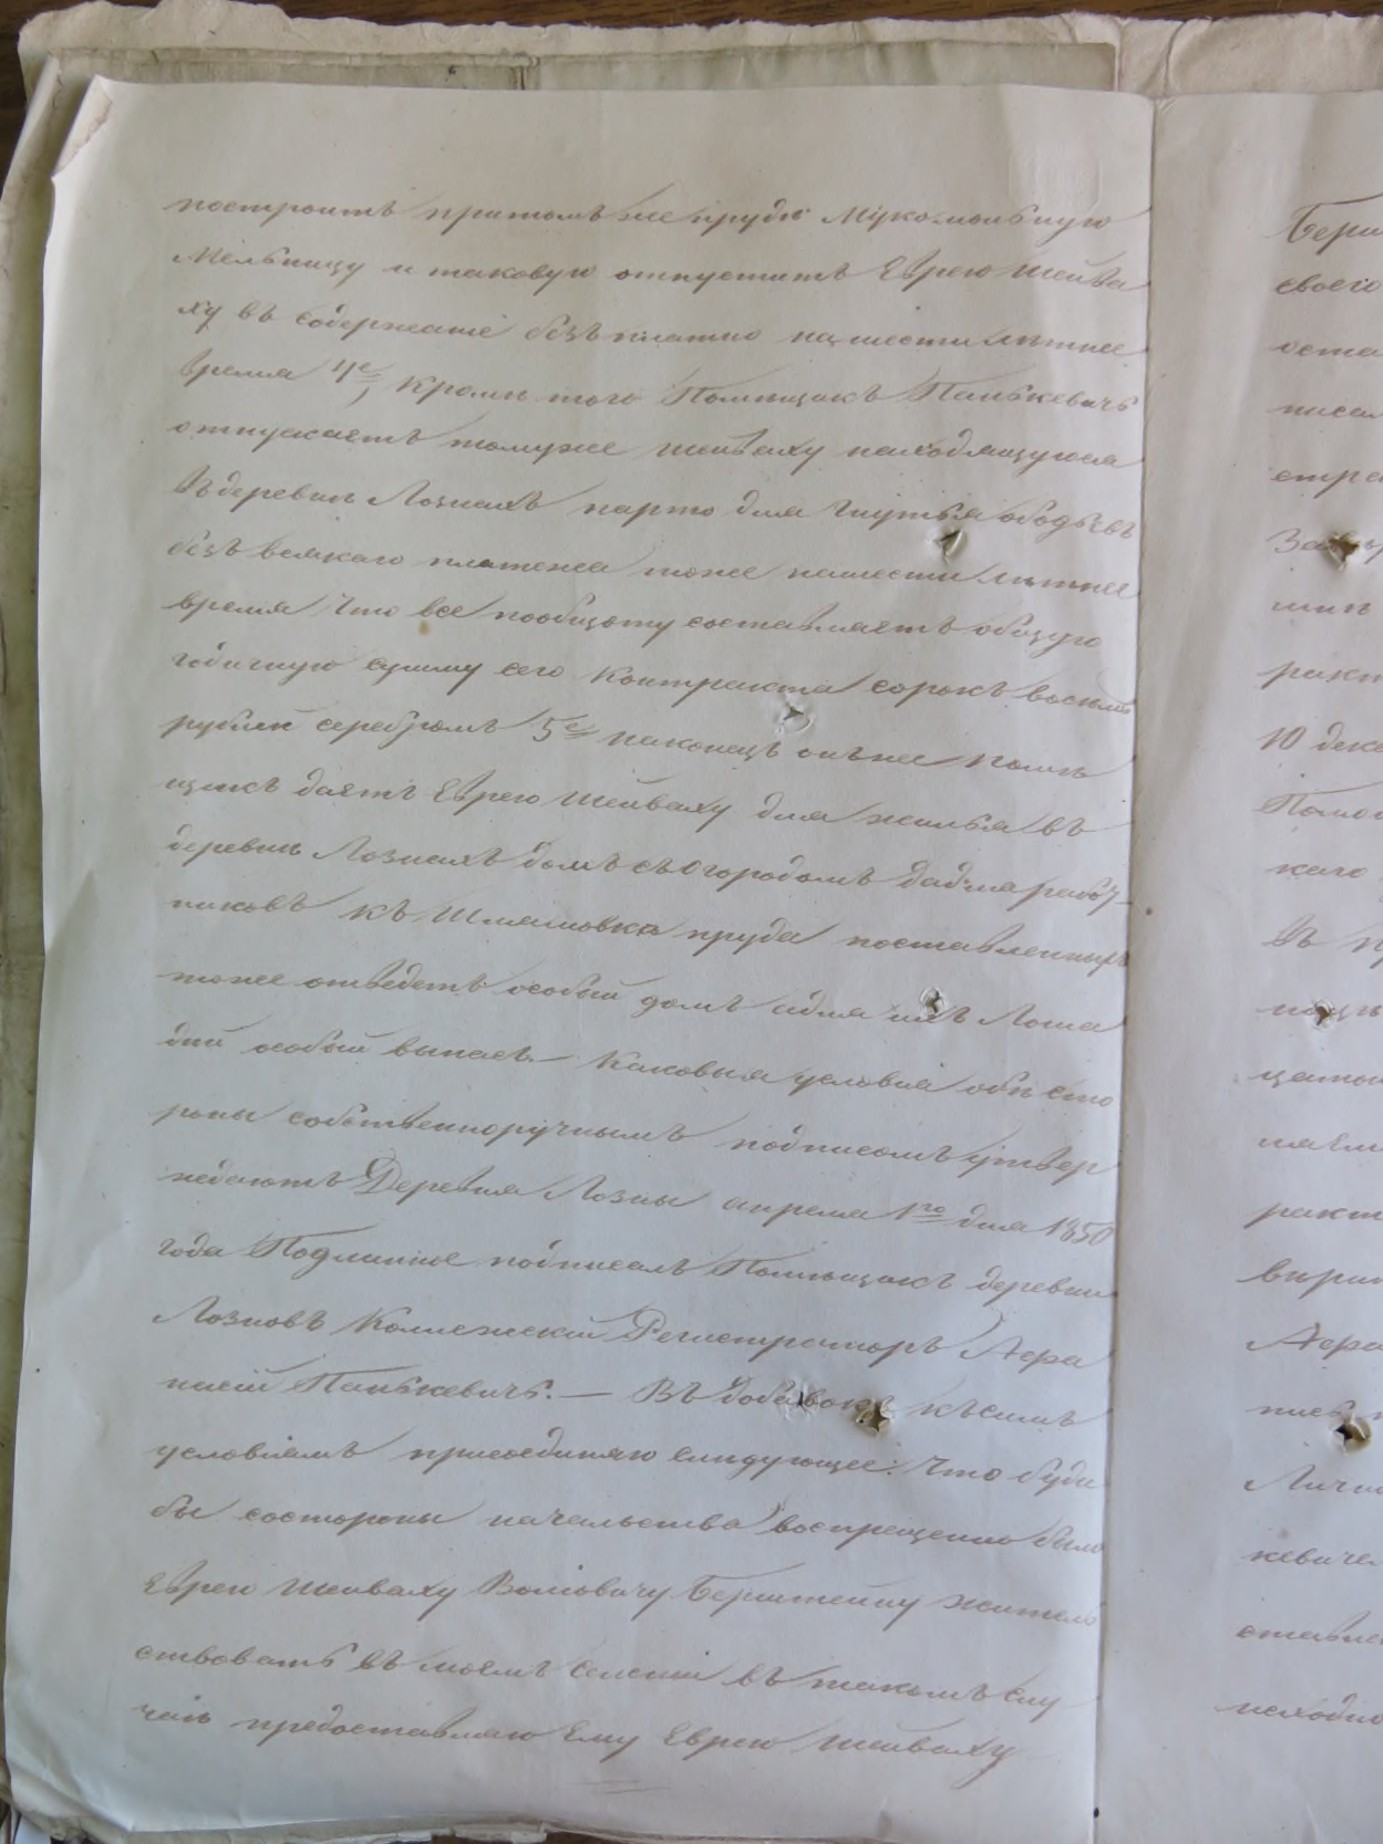 построить притомъ же пруде Мукомольную
Мельницу и таковую отпустить Еврею Шейва
ху въ содержаніе безъплатно на шестилѣтнее
время 4е, Кромѣ того Помѣщикъ Панькевичь
отпускаетъ томуже Шейваху находящуюся
въ деревнѣ Лознахъ парню для гнутья ободьевъ
безъ всякаго платежа тоже нашестилѣтнее
время что все пообщету составляетъ общую
годичную сумму сего Контракта сорокъ восемь
рублей серебромъ 5е наконецъ онъже Помѣ
щикъ даетъ Еврею Шейваху для жилья въ
деревнѣ Лознахъ домъ съ огородомъ адля рабоч-
никовъ къ Шлямовкѣ пруда поставленныхъ
тоже отведетъ особый домъ адля ихъ Лоша
дей особый выпасъ. — Каковыя условія обѣ сто
роны собственноручнымъ подписомъ утвер
ждаютъ Деревня Лозны апреля 1го дня 1850
года Подлинное подписалъ Помѣщикъ деревни
Лозновъ Коллежскій Регистраторъ Аѳа
насій Панькевичь. — Въ добавокъ къ симъ
условіямъ присоединяю слѣдующее: что буде
бы состороны начальства воспрещенно было
Еврею Шейваху Вольовичу Бернштейну житель
ствовать въ моемъ селеніи въ такомъ слу
чаѣ предоставляю Ему Еврею Шейваху
Берн
своего
оста
писа
10 дек
каго
ракт
Аѳа
Лично
кевиче
находи